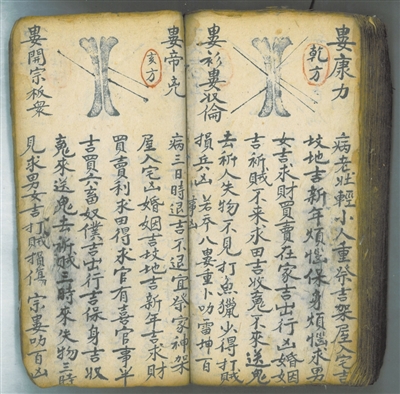 婁康力
乾方
婁衫婁奴倫
病老壯輕小人重祭吉架屋入宅吉
坟地吉新年煩惱保身煩惱求男
女吉求財買賣在家吉出行凶婚姻
吉祈賊不來求田吉收蒐不來送鬼
去祈人失物不見打魚獵少得打賊
損兵凶 若卜八婁重卜叻雷坤百
婁帝堯
亥方
婁開宗板眾
病三日時退吉不退宜祭家神架
屋入宅凶婚姻吉坟地吉新年吉求財
買賣利求田得求官有喜官事半
吉買六畜奴僕吉出行吉保身吉收
蒐來送鬼去祈賊三時來失物三時
見求男女吉打賊損傷 宗婁叻百凶